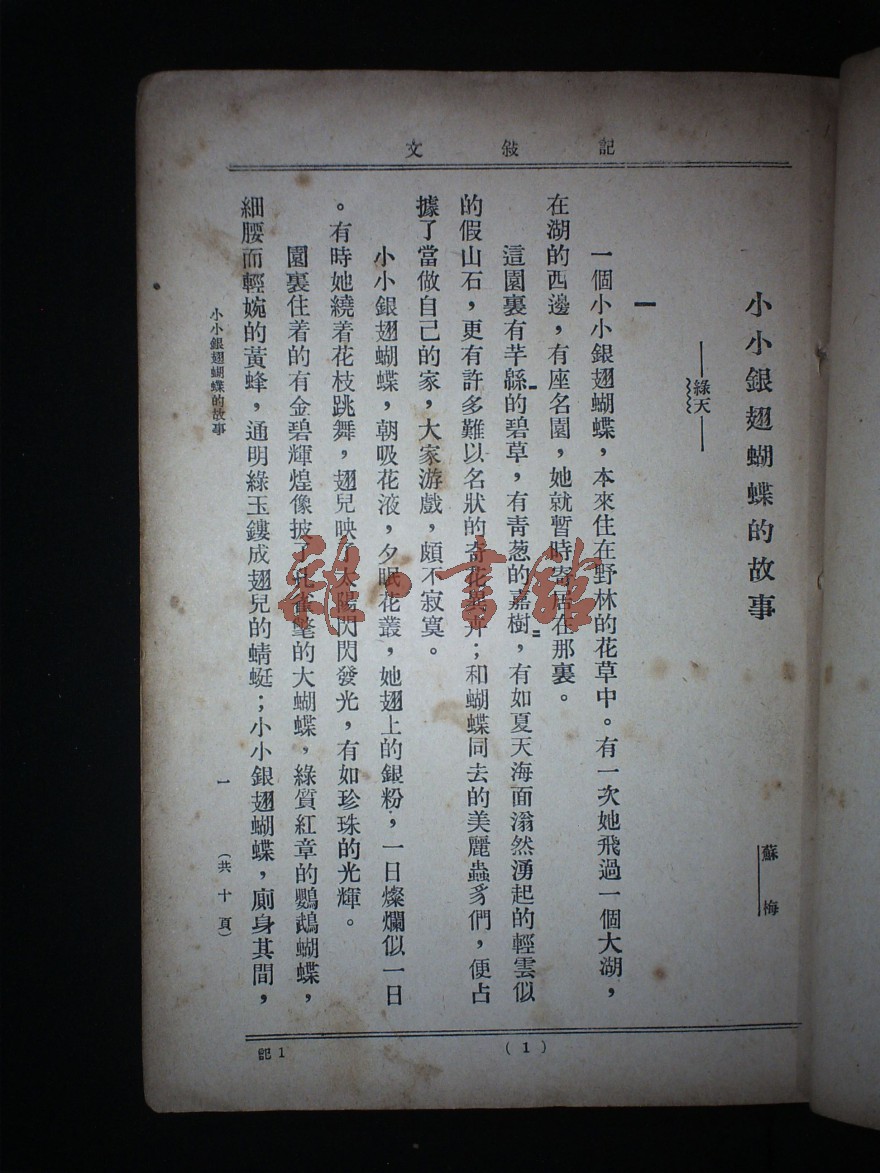 記敍文
小小銀翅蝴蝶的故事
蘇梅
——綠天——
一
一個小小銀翅蝴蝶，本來住在野林的花草中。有一次她飛過一個大湖，
在湖的西邊，有座名園，她就暫時寄居在那裏。
這園裏有芊緜的碧草，有靑葱的嘉樹，有如夏天海面滃然湧起的輕雲似
的假山石，更有許多難以名狀的奇花異卉；和蝴蝶同去的美麗蟲豸們，便占
據了當做自己的家，大家游戲，頗不寂寞。
小小銀翅蝴蝶，朝吸花液，夕眠花叢，她翅上的銀粉，一日燦爛似一日
。有時她繞着花枝跳舞，翅兒映了太陽閃閃發光，有如珍珠的光輝。
園裏住着的有金碧輝煌像披了孔雀氅的大蝴蝶，綠質紅章的鸚鵡蝴蝶，
細腰而輕婉的黃蜂，通明綠玉鏤成翅兒的蜻蜓；小小銀翅蝴蝶，廁身其間，
小小銀翅蝴蝶的故事
一
（共十頁）
(1)
記1
雜·書館